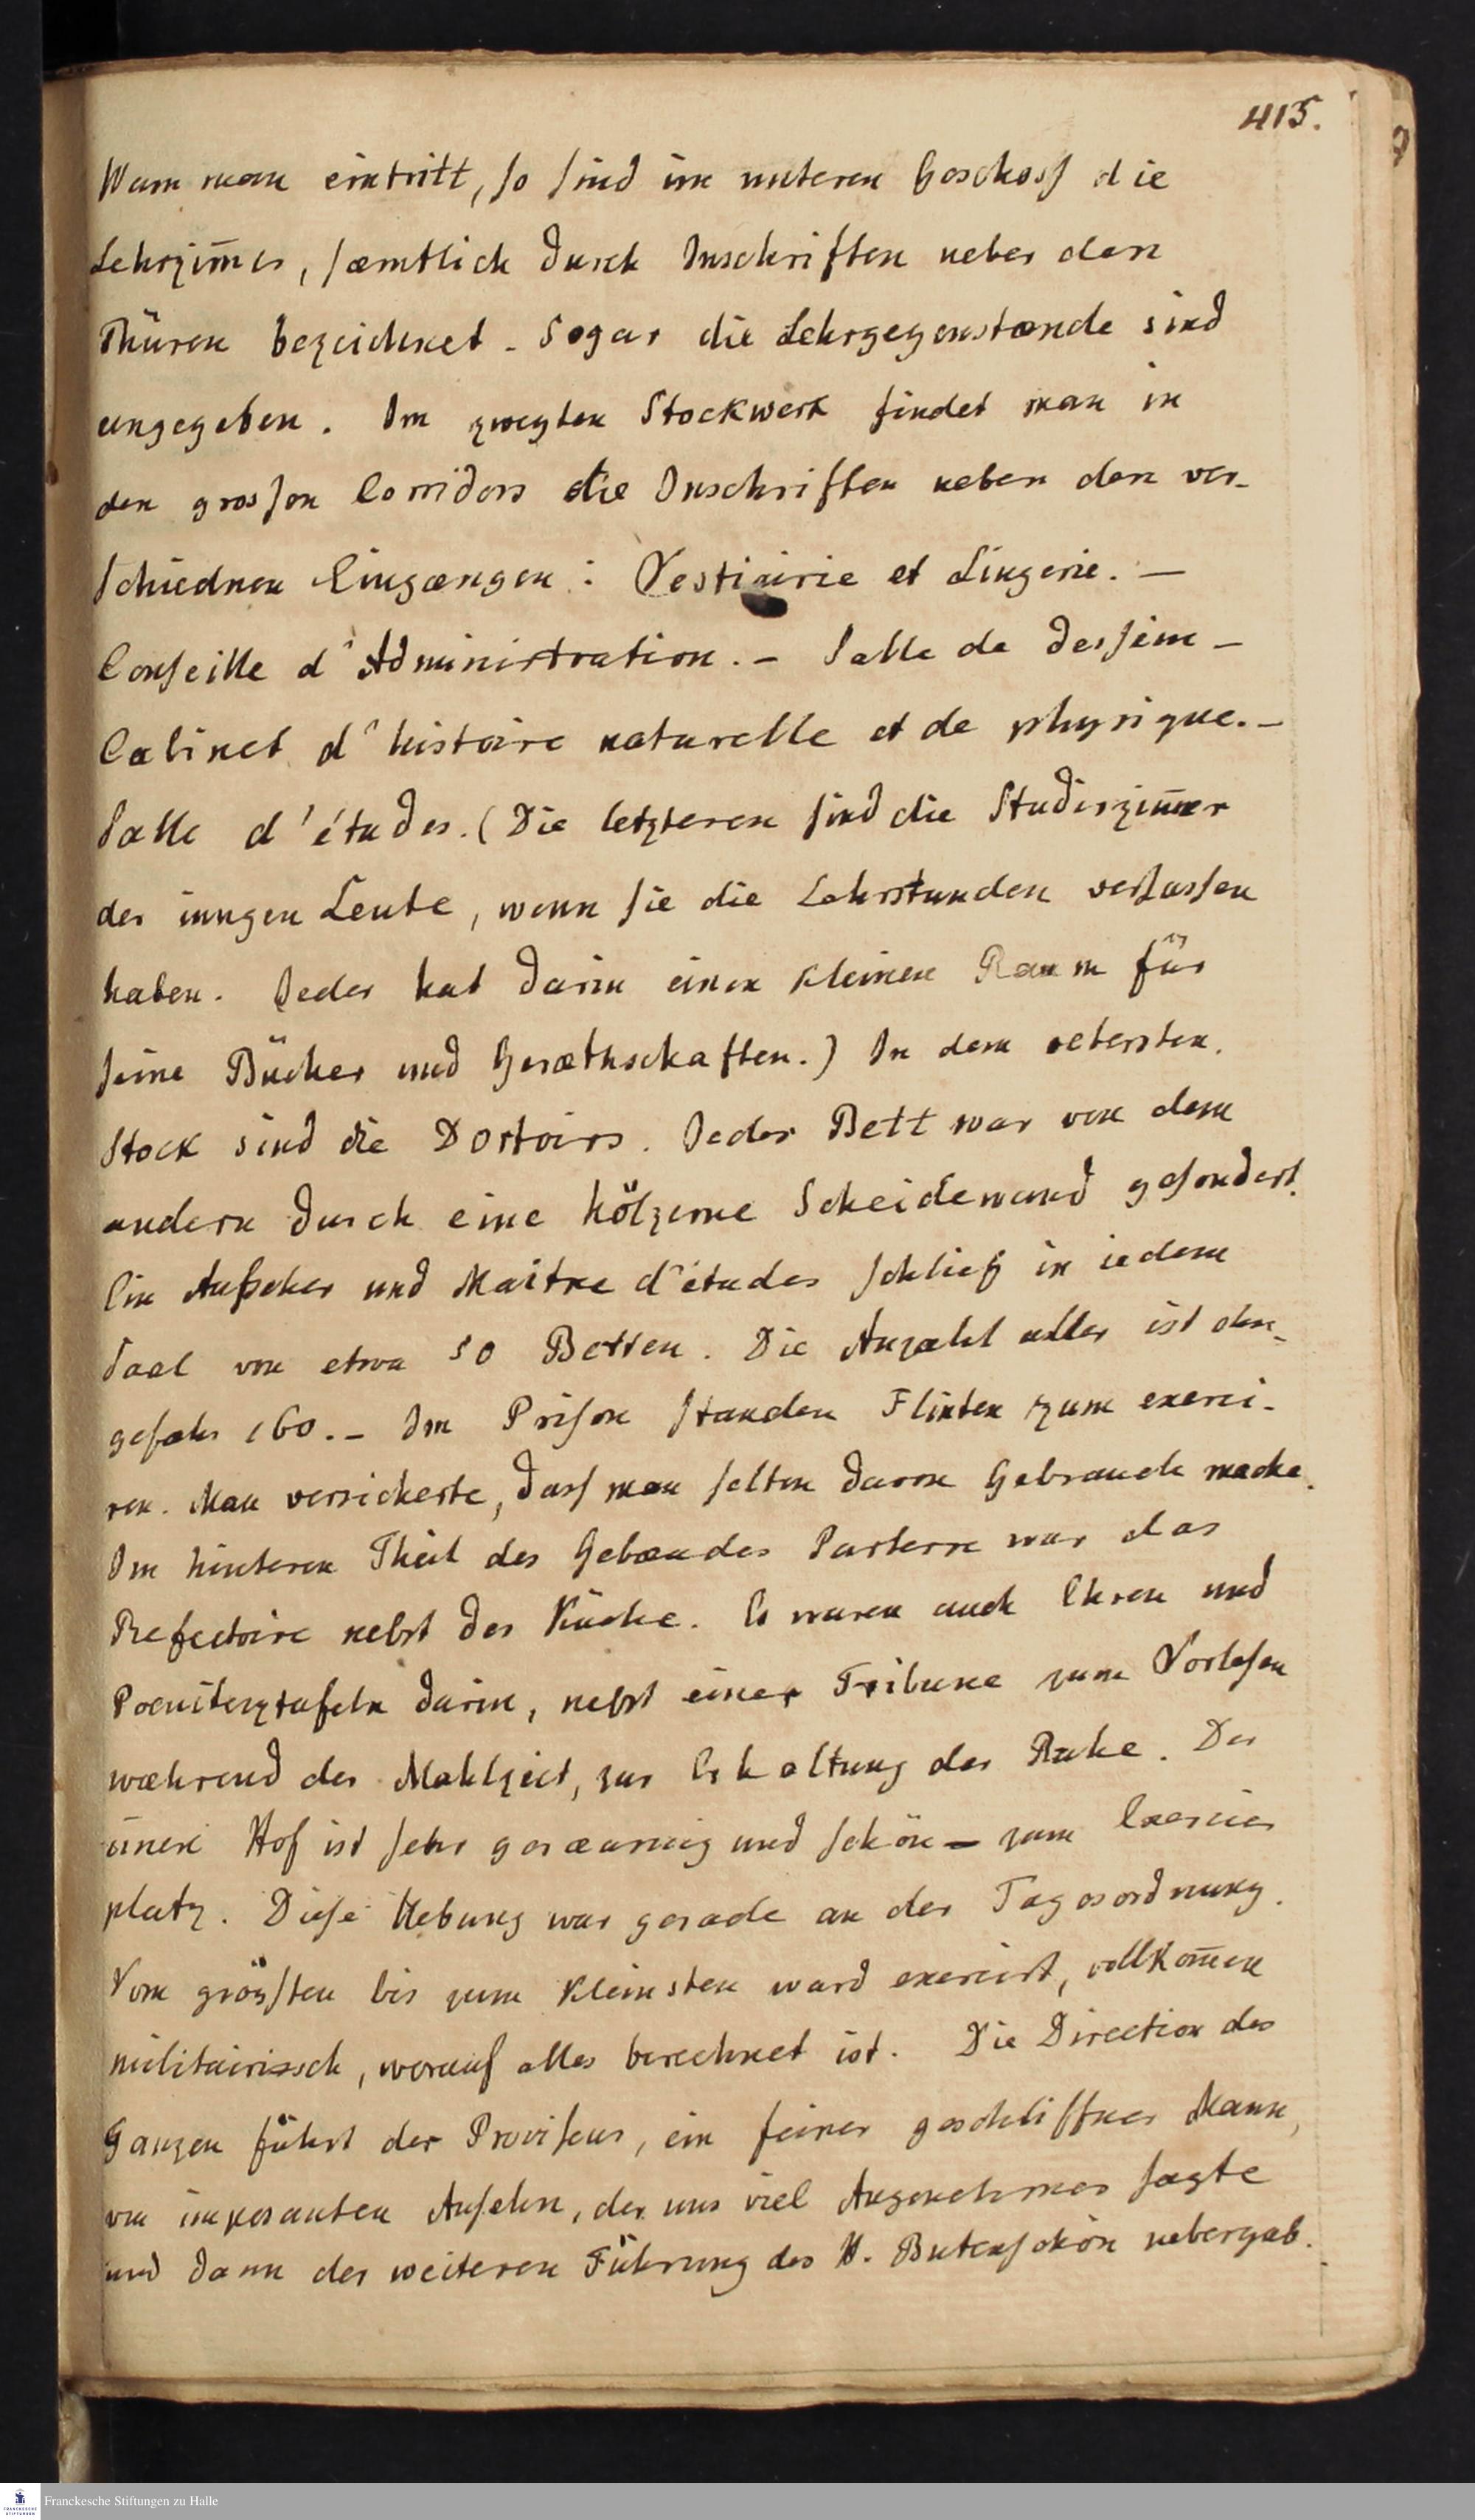 415.
Wenn man eintritt, so sind im unteren Geschoss die
Lehrzim̄er, sæmtlich durch Inschriften ueber den
Thüren bezeichnet. Sogar die Lehrgegenstænde sind
angegeben. Im zweyten Stockwerk findet man in
den grossen Corridors die Inschriften neben den ver-
schiednen Eingængen: Vestiairie et Lingerie. —
Conseille d'Administration. — Salle de dessein —
Cabinet d'histoire naturelle et de physique. —
Salle d'études. (Die letzteren sind die Studirzim̄er
der iungen Leute, wenn sie die Lehrstunden verlassen
haben. Jeder hat darin einen kleinen Raum für
seine Bücher und Geræthschaften.) In dem obersten
Stock sind die Dortoirs. Jedes Bett war von dem
andern durch eine hölzerne Scheidewand gesondert.
Ein Aufseher und Maitre d'études schlief in iedem
Saal von etwa 50 Betten. Die Anzahl aller ist ohn-
gefæhr 160. — Im Prison standen Flinten zum exerci-
ren. Man versicherte, dass man selten davon Gebrauch mache.
Im hinteren Theil des Gebæudes Parterre war das
Refectoire nebst der Küche. Es waren auch Ehren und
Poenitenztafeln darin, nebst einer Tribune zum Vorlesen
wæhrend der Mahlzeit, zur Erhaltung der Ruhe. Der
in̄ere Hof ist sehr geræumig und schön — zum Exercier
platz. Diese Uebung war gerade an der Tagesordnung.
Vom grössten bis zum kleinsten ward exercirt, vollkom̄en
militairissch, worauf alles berechnet ist. Die Direction des
Ganzen führt der Proviseur, ein feiner geschliffner Mann,
von imposanten Ansehn, der uns viel Angenehmes sagte
und dann der weiteren Führung des H. Butenschön uebergab.
Franckesche Stiftungen zu Halle